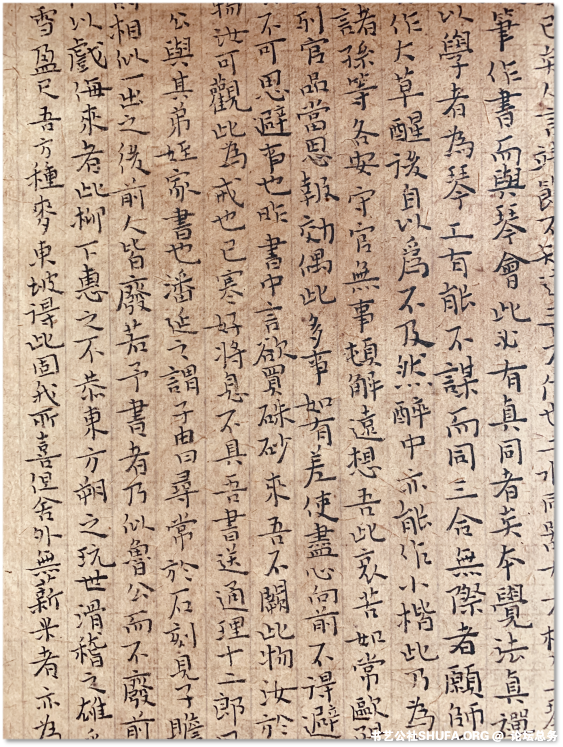 筆作書而與琴會此必有真同者矣本覺法真禪
以學者為琴工有能不謀而同三合無際者願師
作大草醒後自以爲不及然醉中亦能作小楷此乃為
諸孫等各安守官無事頓解遠想吾此哀苦如常歐
列官品當思報効偶此多事如有差使盡心向前不得避
不可思避事也昨書中言欲買硃砂來吾不闕此物汝於
物汝可觀此為戒也已寒好將息不具吾書送通理十二郎
公與其弟姪家書也潘延之謂子由曰尋常於石刻見子瞻
相似一出之後前人皆廢若予書者乃似魯公而不廢前
以戲侮來者此柳下惠之不恭東方朔之玩世滑稽之雄
雪盈尺吾方種麥東坡得此固我所喜但舍外無薪米者亦為
书艺公社SHUFA.ORG @ 论坛总务